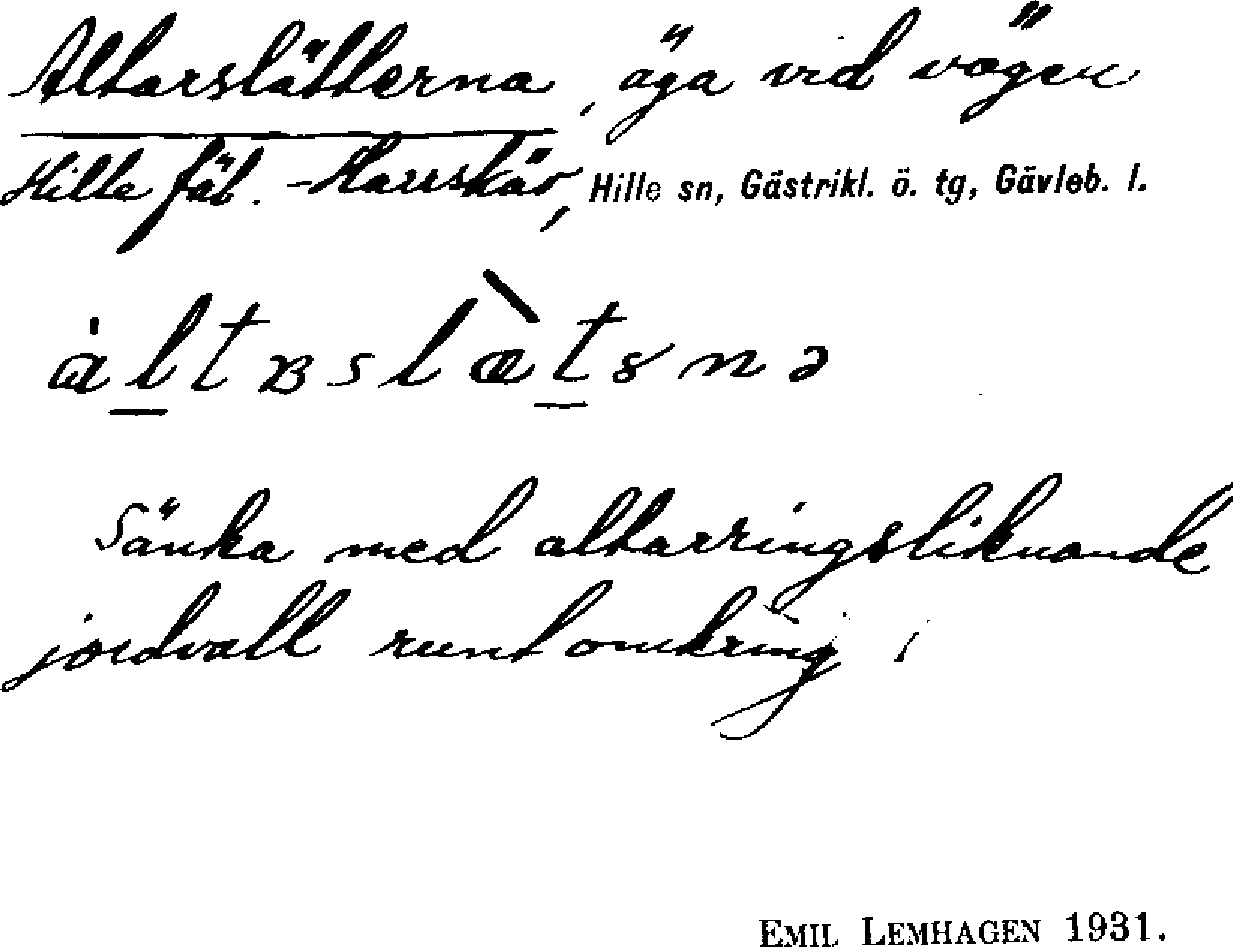 Altarslätterna, äga vid vägen
Hille fäb. - Harrskär, Hille sn, Gästrikl. ö. tg, Gävleb. l.
àltʙslæ̀tɤnə
Sänka med altarringsliknande
jordvall runt omkring.
EMIL LEMHAGEN 1931.